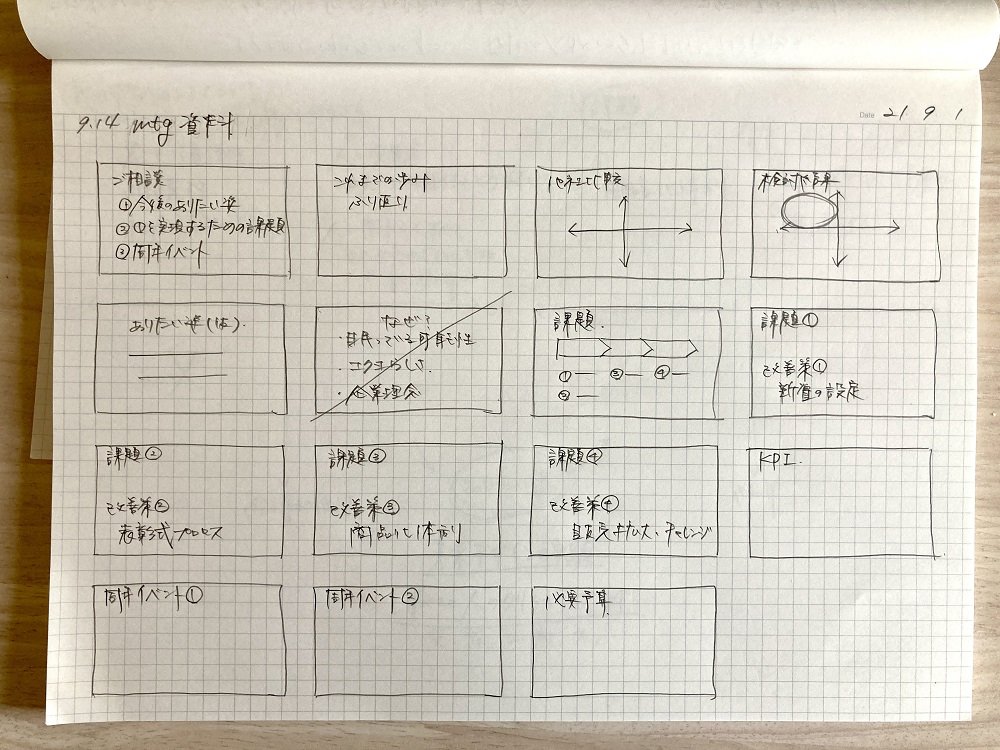 9.14 mtg 資料
Date 21 9 1
ご相談
①今後のありたい姿
②①を実現するための課題
③周年イベント
これまでの歩み
ふり返り
他社比較
検討結果
ありたい姿(仮)
なぜ?
・持っている可能性
・らしさ
・企業理念
課題
① ③ ④
②
課題①
改善策①
新賞の設定
課題②
改善策②
表彰式プロセス
課題③
改善策③
商品化体制
課題④
改善策④
チャレンジ
KPI
周年イベント①
周年イベント②
必要予算